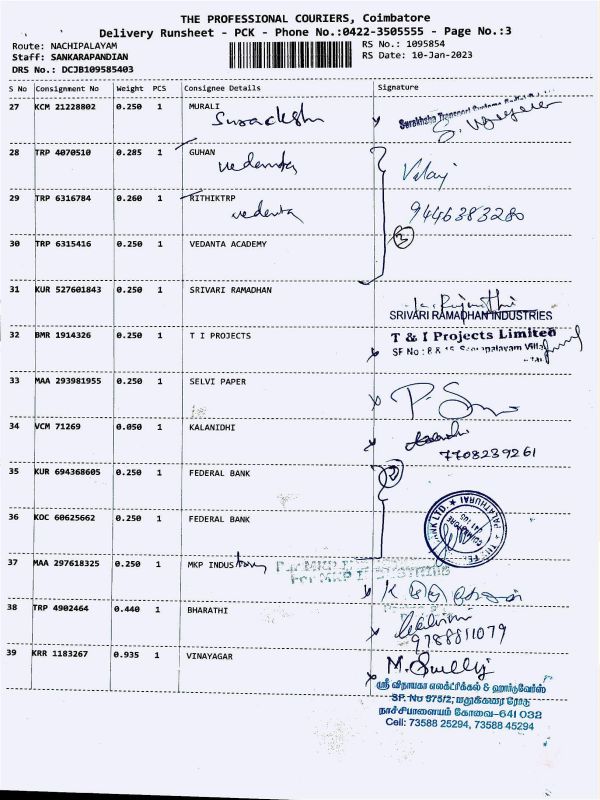 THE PROFESSIONAL COURIERS, Coimbatore
Delivery Runsheet - PCK - Phone No.:0422-3505555 - Page No.:3
Route: NACHIPALAYAM RS No.: 1095854
Staff: SANKARAPANDIAN RS Date: 10-Jan-2023
DRS No.: DCJB109585403
S No Consignment No Weight PCS Consignee Details Signature
27 KCM 21228802 0.250 1 MURALI
28 TRP 4070510 0.285 1 GUHAN
vedanta
29 TRP 6316784 0.260 1 RITHIKTRP
9446383280
vedanta
3
30 TRP 6315416 0.250 1 VEDANTA ACADEMY
31 KUR 527601843 0.250 1 SRIVARI RAMADHAN
SRIVARI RAMADHAN INDUSTRIES
32 BMR 1914326 0.250 1 T I PROJECTS T & I Projects Limited
SF No :
33 MAA 293981955 0.250 1 SELVI PAPER
34 VCM 71269 0.050 1 KALANIDHI
7708239261
35 KUR 694368605 0.250 1 FEDERAL BANK 2
36 KOC 60625662 0.250 1 FEDERAL BANK
37 MAA 297618325 0.250 1 MKP INDUS
For MKP
38 TRP 4902464 0.440 1 BHARATHI
9788811079
39 KRR 1183267 0.935 1 VINAYAGAR
ஸ்ரீ விநாயகா எலக்ட்ரிக்கல் & ஹார்டுவேர்ஸ்
SF. No 975/2, மதுக்கரை ரோடு
நாச்சிபாளையம் கோவை-641 032
Cell: 73588 25294, 73588 45294